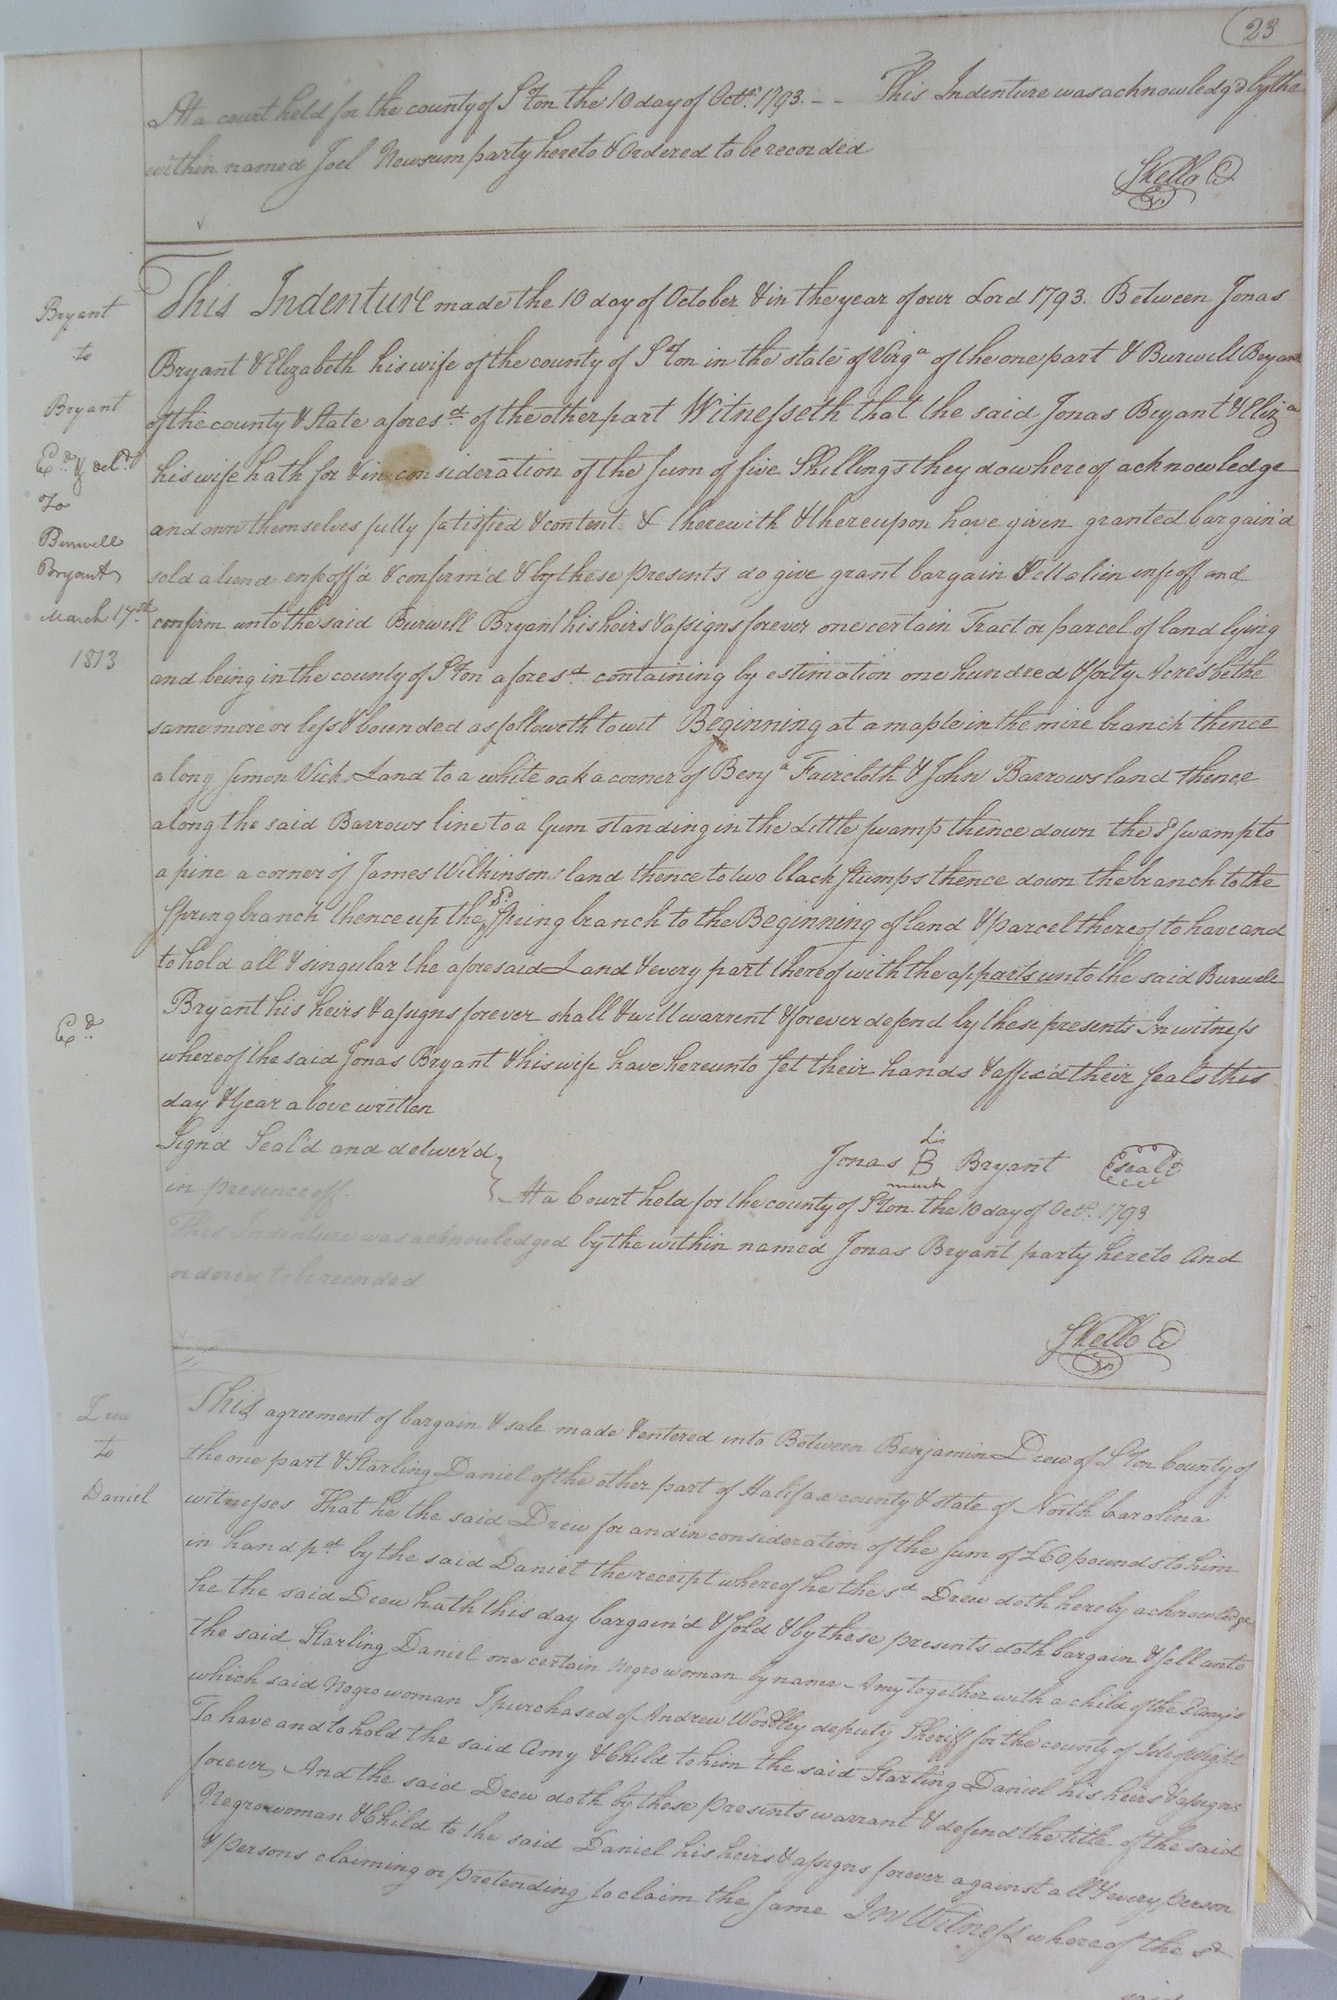 23
At a court held for the county of S°ton the 10 day of Octr. 1793. -- This Indenture was acknowledg'd by the
within named Joel Newsum party hereto & Ordered to be recorded
SKello Cl
Bryant
to
Bryant
Ed. & deld.
To
Burwell
Bryant
March 17th
1813
This Indenture made the 10 day of October & in the year of our Lord 1793. Between Jonas
Bryant & Elizabeth his wife of the county of S°ton in the state of Virga of the one part & Burwell Bryant
of the county & State aforesd. of the other part Witnesseth that the said Jonas Bryant & Eliza
his wife hath for & in consideration of the Sum of five Shillings they do whereof acknowledge
and own themselves fully satisfied & content & therewith & thereupon have given granted bargain'd
sold aliend enfeoff'd & confirm'd & by these presents do give grant bargain & Sell alien infeoff and
confirm unto the said Burwell Bryant his heirs & assigns forever one certain Tract or parcel of land lying
and being in the county of S°ton aforesd. containing by estimation one hundred & forty Acres be the
same more or less & bounded as followeth to wit Beginning at a maple in the mire branch thence
along Simon Vicks Land to a white oak a corner of Benja Faircloth & John Barrows land thence
along the said Barrows line to a Gum standing in the Little swamp thence down the Sd swamp to
a pine a corner of James Wilkinsons land thence to two black Stumps thence down the branch to the
Spring branch thence up the Sd Spring branch to the Beginning of land & parcel thereof to have and
to hold all & singular the aforesaid Land & every part thereof with the apparts unto the said Burwell
Bryant his heirs & assigns forever shall & will warrent & forever defend by these presents In witness
whereof the said Jonas Bryant & his wife have hereunto Set their hands & affix'd their Seals this
day & year above written
Ed.
Sign'd Seal'd and deliver'd
in presence off
his
Jonas B Bryant Seal
mark
At a Court held for the county of S°ton the 10 day of Octr. 1793
This Indenture was acknowledged by the within named Jonas Bryant party hereto and
ordered to be recorded
SKello Cl
Drew
to
Daniel
This agreement of bargain & sale made & entered into Between Benjamin Drew of S°ton County of
the one part & Starling Daniel of the other part of Halifax county & state of North Carolina
witnesses That he the said Drew for and in consideration of the Sum of £60 pounds to him
in hand pd. by the said Daniel the receipt whereof he the sd. Drew doth hereby acknowledge
he the said Drew hath this day bargain'd & Sold & by these presents doth bargain & Sell unto
the said Starling Daniel one certain Negro woman by name Amy together with a child of the Sd Amy's
which said Negro woman I purchased of Andrew Woodley deputy Sheriff for the county of Isle of Wight
To have and to hold the said Amy & Child to him the said Starling Daniel his heirs & assigns
forever, And the said Drew doth by these presents warrant & defend the title of the said
Negro woman & Child to the said Daniel his heirs & assigns forever against all & every person
& persons claiming or pretending to claim the Same In Witness whereof the sd
said